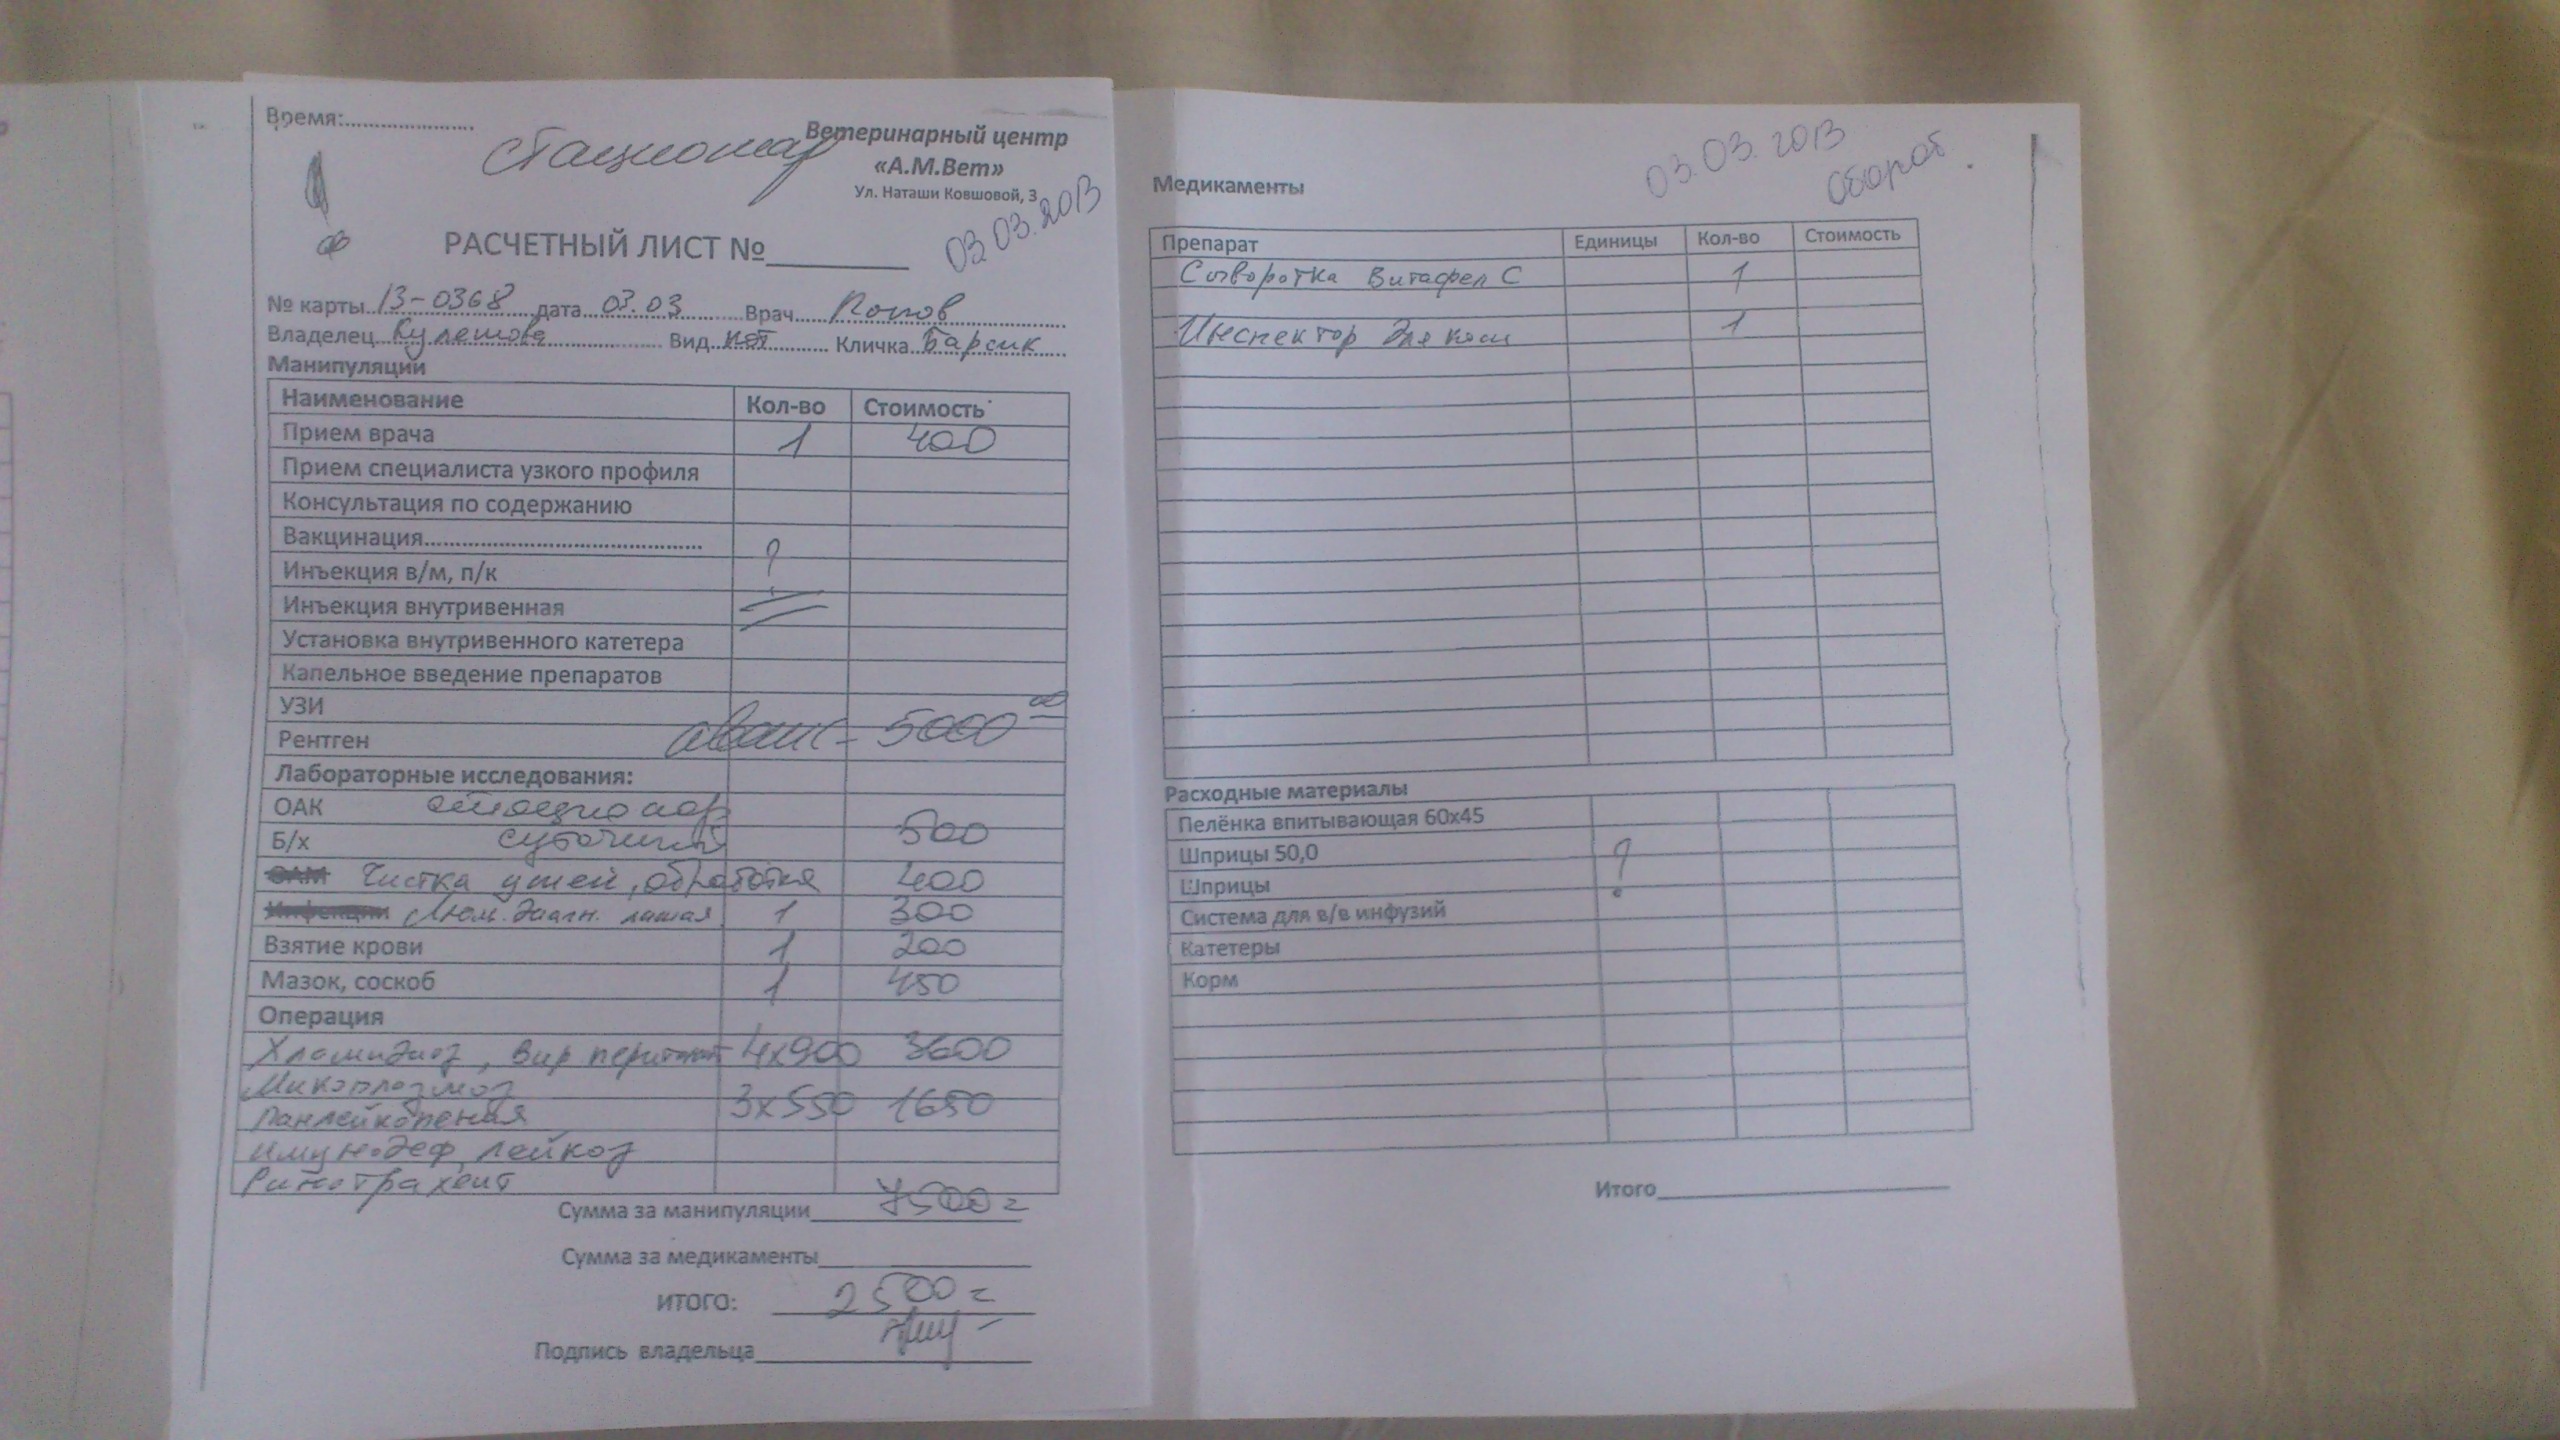 Время:......................
стационар
Ветеринарный центр
«А.М.Вет»
Ул. Наташи Ковшовой, 3
03.03.2013
РАСЧЕТНЫЙ ЛИСТ №__________
№ карты 13-0368 дата 03.03 Врач Попов
Владелец Кулешова Вид кот Кличка Барсик
Манипуляции
Наименование Кол-во Стоимость
Прием врача 1 400
Прием специалиста узкого профиля
Консультация по содержанию
Вакцинация............................................
Инъекция в/м, п/к ?
Инъекция внутривенная
Установка внутривенного катетера
Капельное введение препаратов
УЗИ
Рентген аванс - 5000 00
Лабораторные исследования:
ОАК стационар
Б/х суточный 500
ОАМ Чистка ушей, обработка 400
Инфекции Люм. диагн. лишая 1 300
Взятие крови 1 200
Мазок, соскоб 1 450
Операция
Хламидиоз, вир перитонит 4х900 3600
Микоплазмоз
панлейкопения 3х550 1650
имунодеф, лейкоз
Ринотрахеит
Сумма за манипуляции 7500=
Сумма за медикаменты
ИТОГО: 2500=
Подпись владельца
03.03.2013
оборот.
Медикаменты
Препарат Единицы Кол-во Стоимость
Сыворотка Витафел С 1
Инспектор для кош 1
Расходные материалы
Пелёнка впитывающая 60х45
Шприцы 50,0 ?
Шприцы
Система для в/в инфузий
Катетеры
Корм
Итого